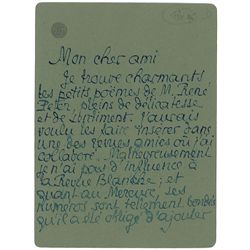 Mon cher ami
Je trouve charmants
les petits poèmes de M. René
Peter, pleins de délicatesse
et de sentiment. J'aurais
voulu les faire insérer dans
une des revues amies où j'ai
collaboré. Malheureusement
je n'ai pas d'influence à
la Revue blanche; et
quant au Mercure, ses
numéros sont tellement bondés
qu'il a été obligé d'ajouter